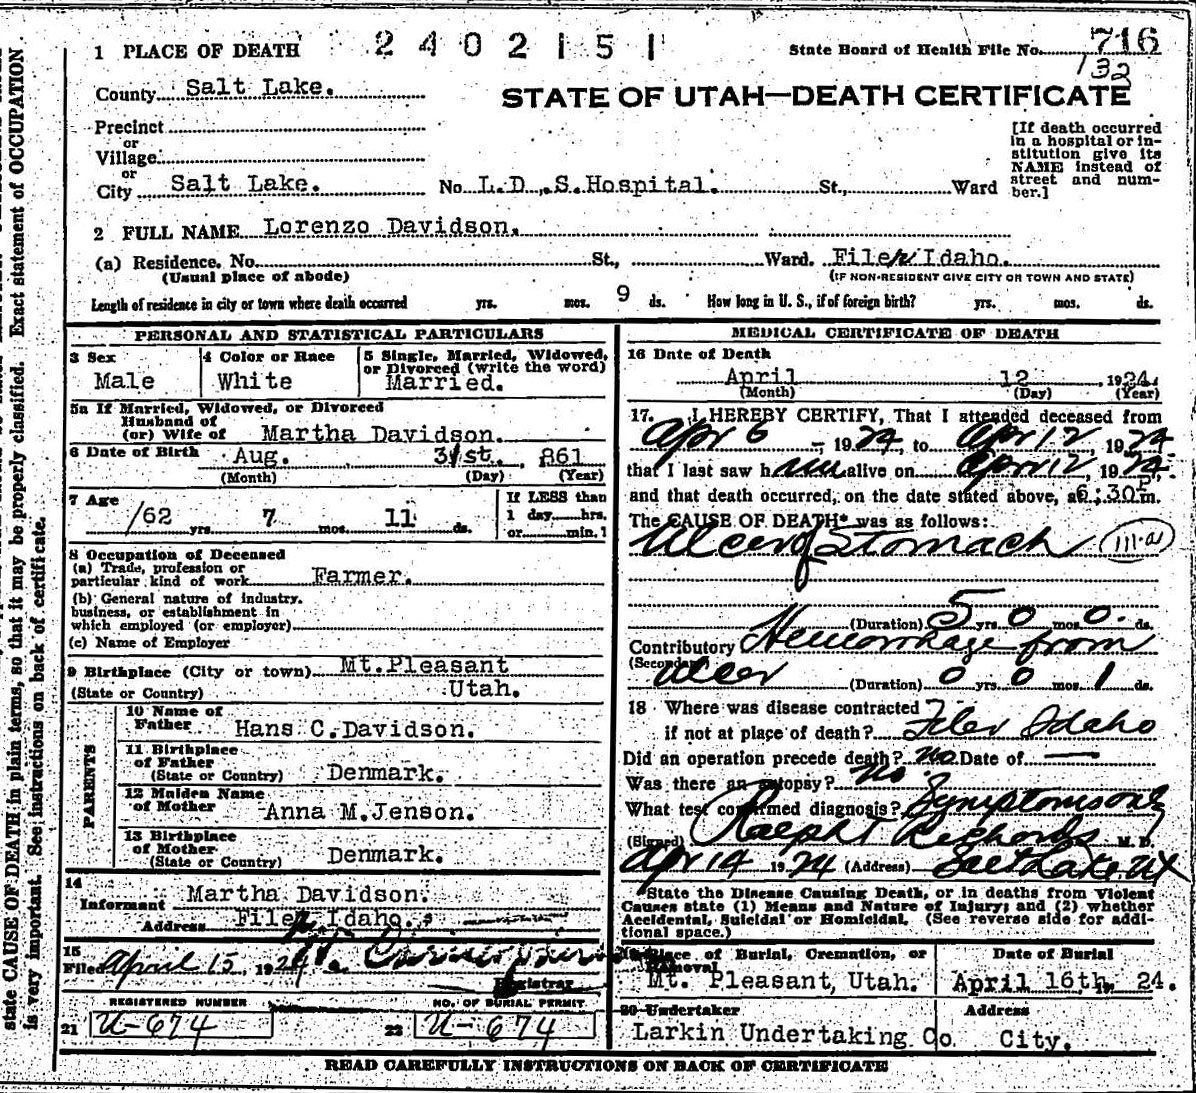 1 PLACE OF DEATH 2402151 State Board of Health File No. 716
132
County Salt Lake. STATE OF UTAH—DEATH CERTIFICATE
Precinct
or
Village
or
City Salt Lake. No. L.D.,S.Hospital. St., Ward
[If death occurred
in a hospital or in-
stitution give its
NAME instead of
street and num-
ber.]
2 FULL NAME Lorenzo Davidson.
(a) Residence. No. St., Ward. Filer Idaho.
(Usual place of abode) (IF NON-RESIDENT GIVE CITY OR TOWN AND STATE)
Length of residence in city or town where death occurred yrs. mos. 9 ds. How long in U. S., if of foreign birth? yrs. mos. ds.
PERSONAL AND STATISTICAL PARTICULARS
3 Sex Male
4 Color or Race White
5 Single, Married, Widowed,
or Divorced (write the word)
Married.
5a If Married, Widowed, or Divorced
Husband of
(or) Wife of Martha Davidson.
6 Date of Birth Aug. 31st. 861
(Month) (Day) (Year)
7 Age
62 yrs 7 mos 11 ds.
If LESS than
1 day hrs.
or min.
8 Occupation of Deceased
(a) Trade, profession or
particular kind of work Farmer.
(b) General nature of industry.
business, or establishment in
which employed (or employer)
(c) Name of Employer
9 Birthplace (City or town) Mt.Pleasant
(State or Country) Utah.
PARENTS
10 Name of
Father Hans C.Davidson.
11 Birthplace
of Father
(State or Country) Denmark.
12 Maiden Name
of Mother Anna M.Jenson.
13 Birthplace
of Mother
(State or Country) Denmark.
14
Informant Martha Davidson.
Address Filer Idaho.
15
Filed April 15, 1924
Registrar
REGISTERED NUMBER NO. OF BURIAL PERMIT
21 U-674 22 U-674
MEDICAL CERTIFICATE OF DEATH
16 Date of Death
April 12, 1924.
(Month) (Day) (Year)
17. I HEREBY CERTIFY, That I attended deceased from
Apr 6 - 1924, to Apr 12, 1924
that I last saw him alive on Apr 12, 1924,
and that death occurred, on the date stated above, at 6:30 P m.
The CAUSE OF DEATH* was as follows:
Ulcer of Stomach (111-a)
(Duration) 5 yrs 0 mos 0 ds.
Contributory Hemorrhage from
(Secondary) Ulcer (Duration) 0 yrs 0 mos 1 ds.
18 Where was disease contracted
if not at place of death? Filer Idaho
Did an operation precede death? No Date of —
Was there an autopsy? No.
What test confirmed diagnosis? Symptoms only
(Signed) Ralph T Richards M. D.
Apr 14 1924 (Address) Salt Lake Ut
*State the Disease Causing Death, or in deaths from Violent
Causes state (1) Means and Nature of Injury; and (2) whether
Accidental, Suicidal or Homicidal. (See reverse side for addi-
tional space.)
19 Place of Burial, Cremation, or
Removal
Mt. Pleasant, Utah.
Date of Burial
April 16th, 24.
20 Undertaker
Larkin Undertaking Co
Address
City.
READ CAREFULLY INSTRUCTIONS ON BACK OF CERTIFICATE
state CAUSE OF DEATH in plain terms, so that it may be properly classified. Exact statement of OCCUPATION
is very important. See instructions on back of certificate.